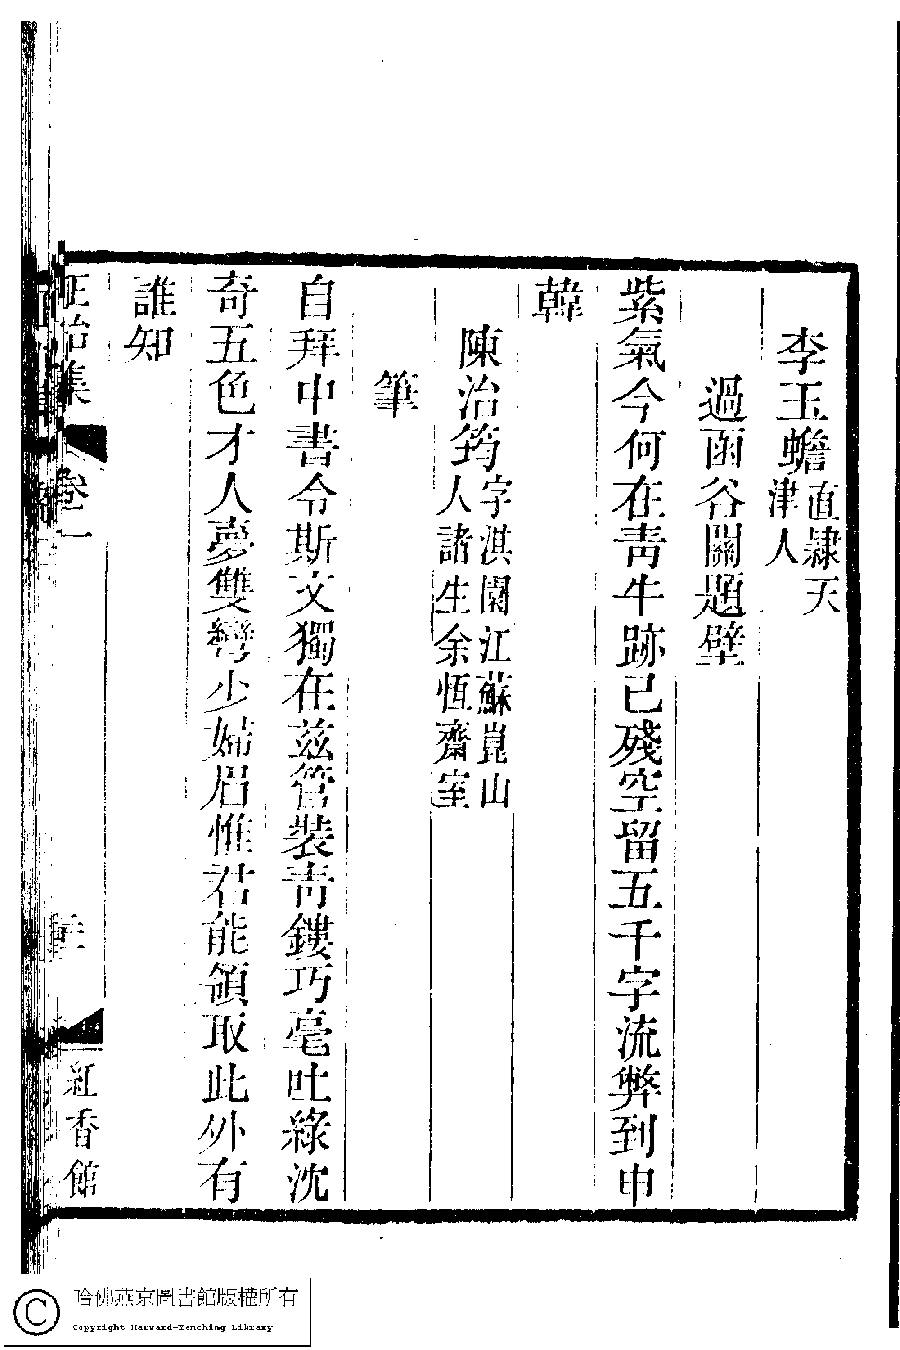 李玉蟾直隸天
津人
過函谷關題壁
紫氣今何在青牛跡已殘空留五千字流弊到申
韓
陳治筠字淇園江蘇崑山
人諸生余恆齋室
筆
自拜中書令斯文獨在茲管裝青鏤巧毫吐綠沈
奇五色才人夢雙彎少婦眉惟君能領取此外有
誰知
正始集
卷一
紅香館
哈佛燕京圖書館版權所有
Copyright Harvard-Yenching Library